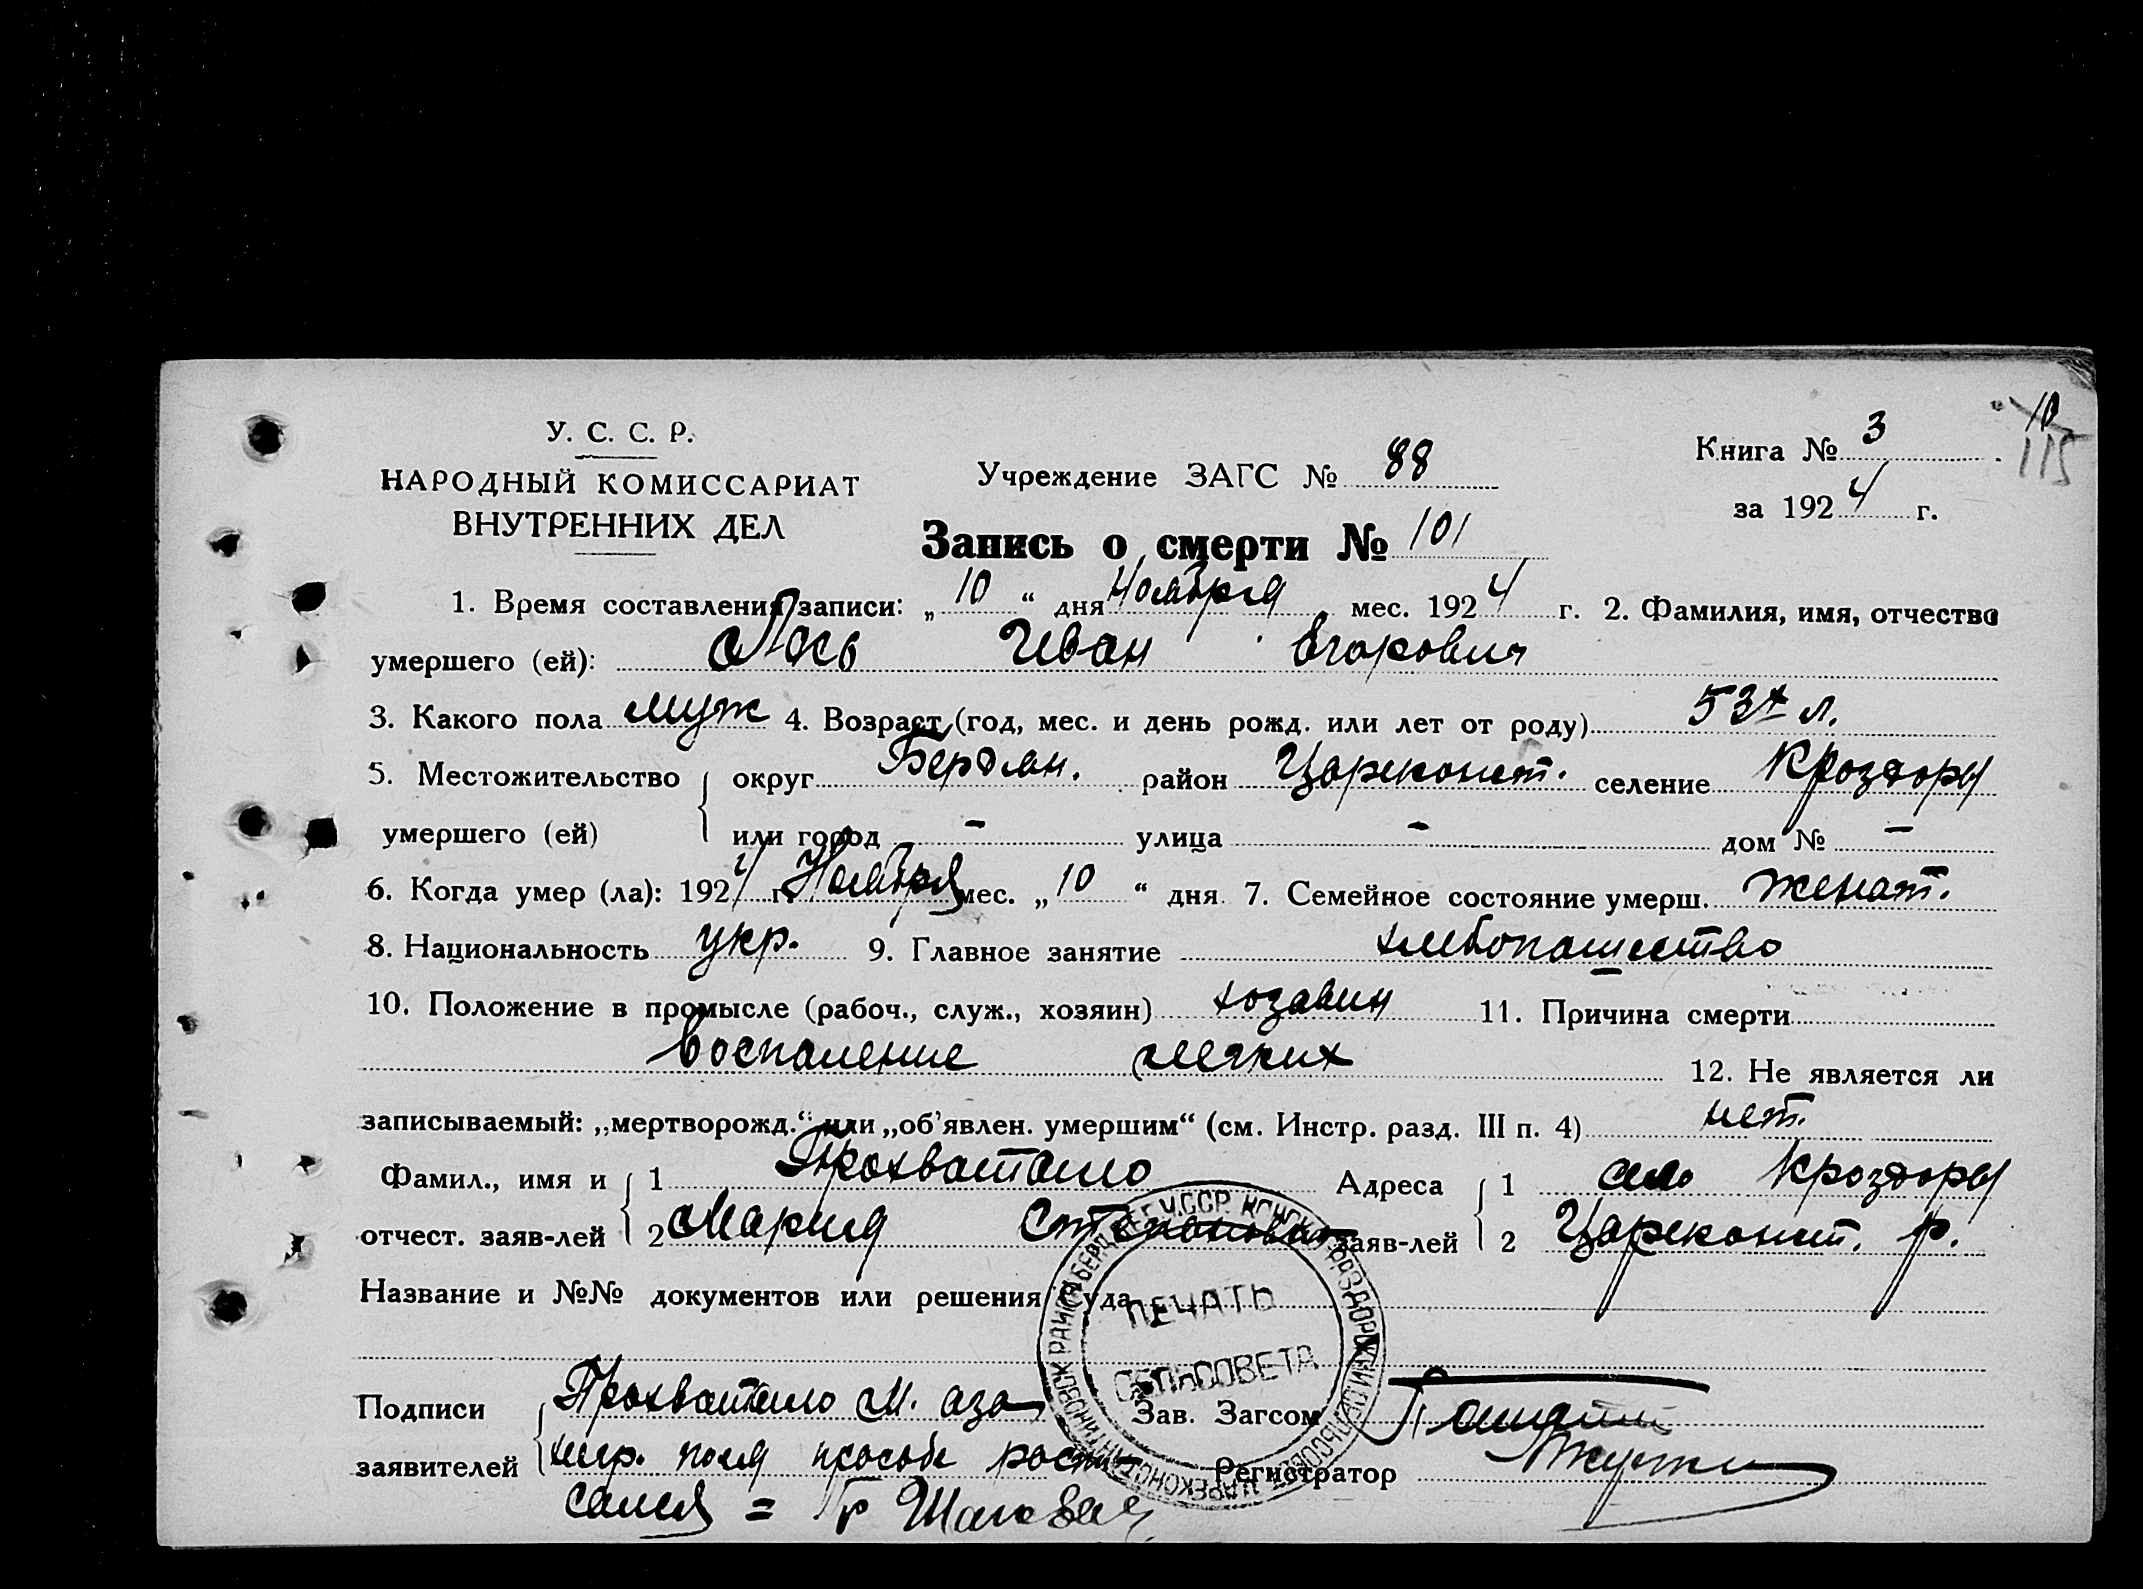 У. С. С. Р.
НАРОДНЫЙ КОМИССАРИАТ
ВНУТРЕННИХ ДЕЛ
Учреждение ЗАГС № 88
Книга № 3
115
за 1924 г.
Запись о смерти № 101
1. Время составления записи: „10“ дня Ноября мес. 1924 г. 2. Фамилия, имя, отчество
умершего (ей): Лось Иван Егорович
3. Какого пола муж 4. Возраст (год, мес. и день рожд. или лет от роду) 53 л.
5. Местожительство округ Бердян. район Цареконст. селение Кроздоры
умершего (ей) или город - улица - дом № -
6. Когда умер (ла): 1924 г. Ноября мес. „10“ дня 7. Семейное состояние умерш. женат.
8. Национальность укр. 9. Главное занятие хлебопашество
10. Положение в промысле (рабоч., служ., хозяин) хозаин 11. Причина смерти
воспаление легких 12. Не является ли
записываемый: „мертворожд.“ или „об’явлен. умершим“ (см. Инстр. разд. III п. 4) нет.
Фамил., имя и 1 Прохватило Адреса 1 село Кроздоры
отчест. заяв-лей 2 Мария Степановна заяв-лей 2 Цареконст. р.
Название и №№ документов или решения суда
Подписи Прохватило М. а за
заявителей по прозьбе Зав. Загсом
Регистратор
= Гр
ПЕЧАТЬ
СЕЛЬСОВЕТА